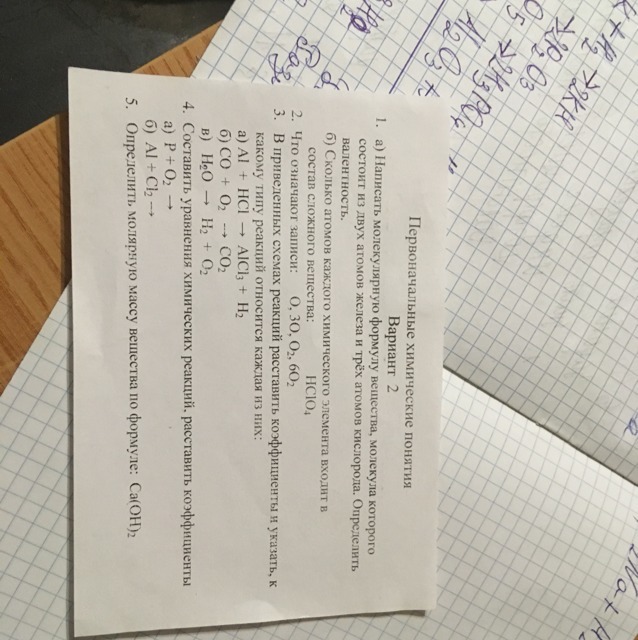 Первоначальные химические понятия
Вариант 2
1. а) Написать молекулярную формулу вещества, молекула которого
состоит из двух атомов железа и трёх атомов кислорода. Определить
валентность.
б) Сколько атомов каждого химического элемента входит в
состав сложного вещества: HClO₄
2. Что означают записи: O, 3O, O₂, 6O₂
3. В приведенных схемах реакций расставить коэффициенты и указать, к
какому типу реакций относится каждая из них:
а) Al + HCl → AlCl₃ + H₂
б) CO + O₂ → CO₂
в) H₂O → H₂ + O₂
4. Составить уравнения химических реакций, расставить коэффициенты
а) P + O₂ →
б) Al + Cl₂ →
5. Определить молярную массу вещества по формуле: Ca(OH)₂